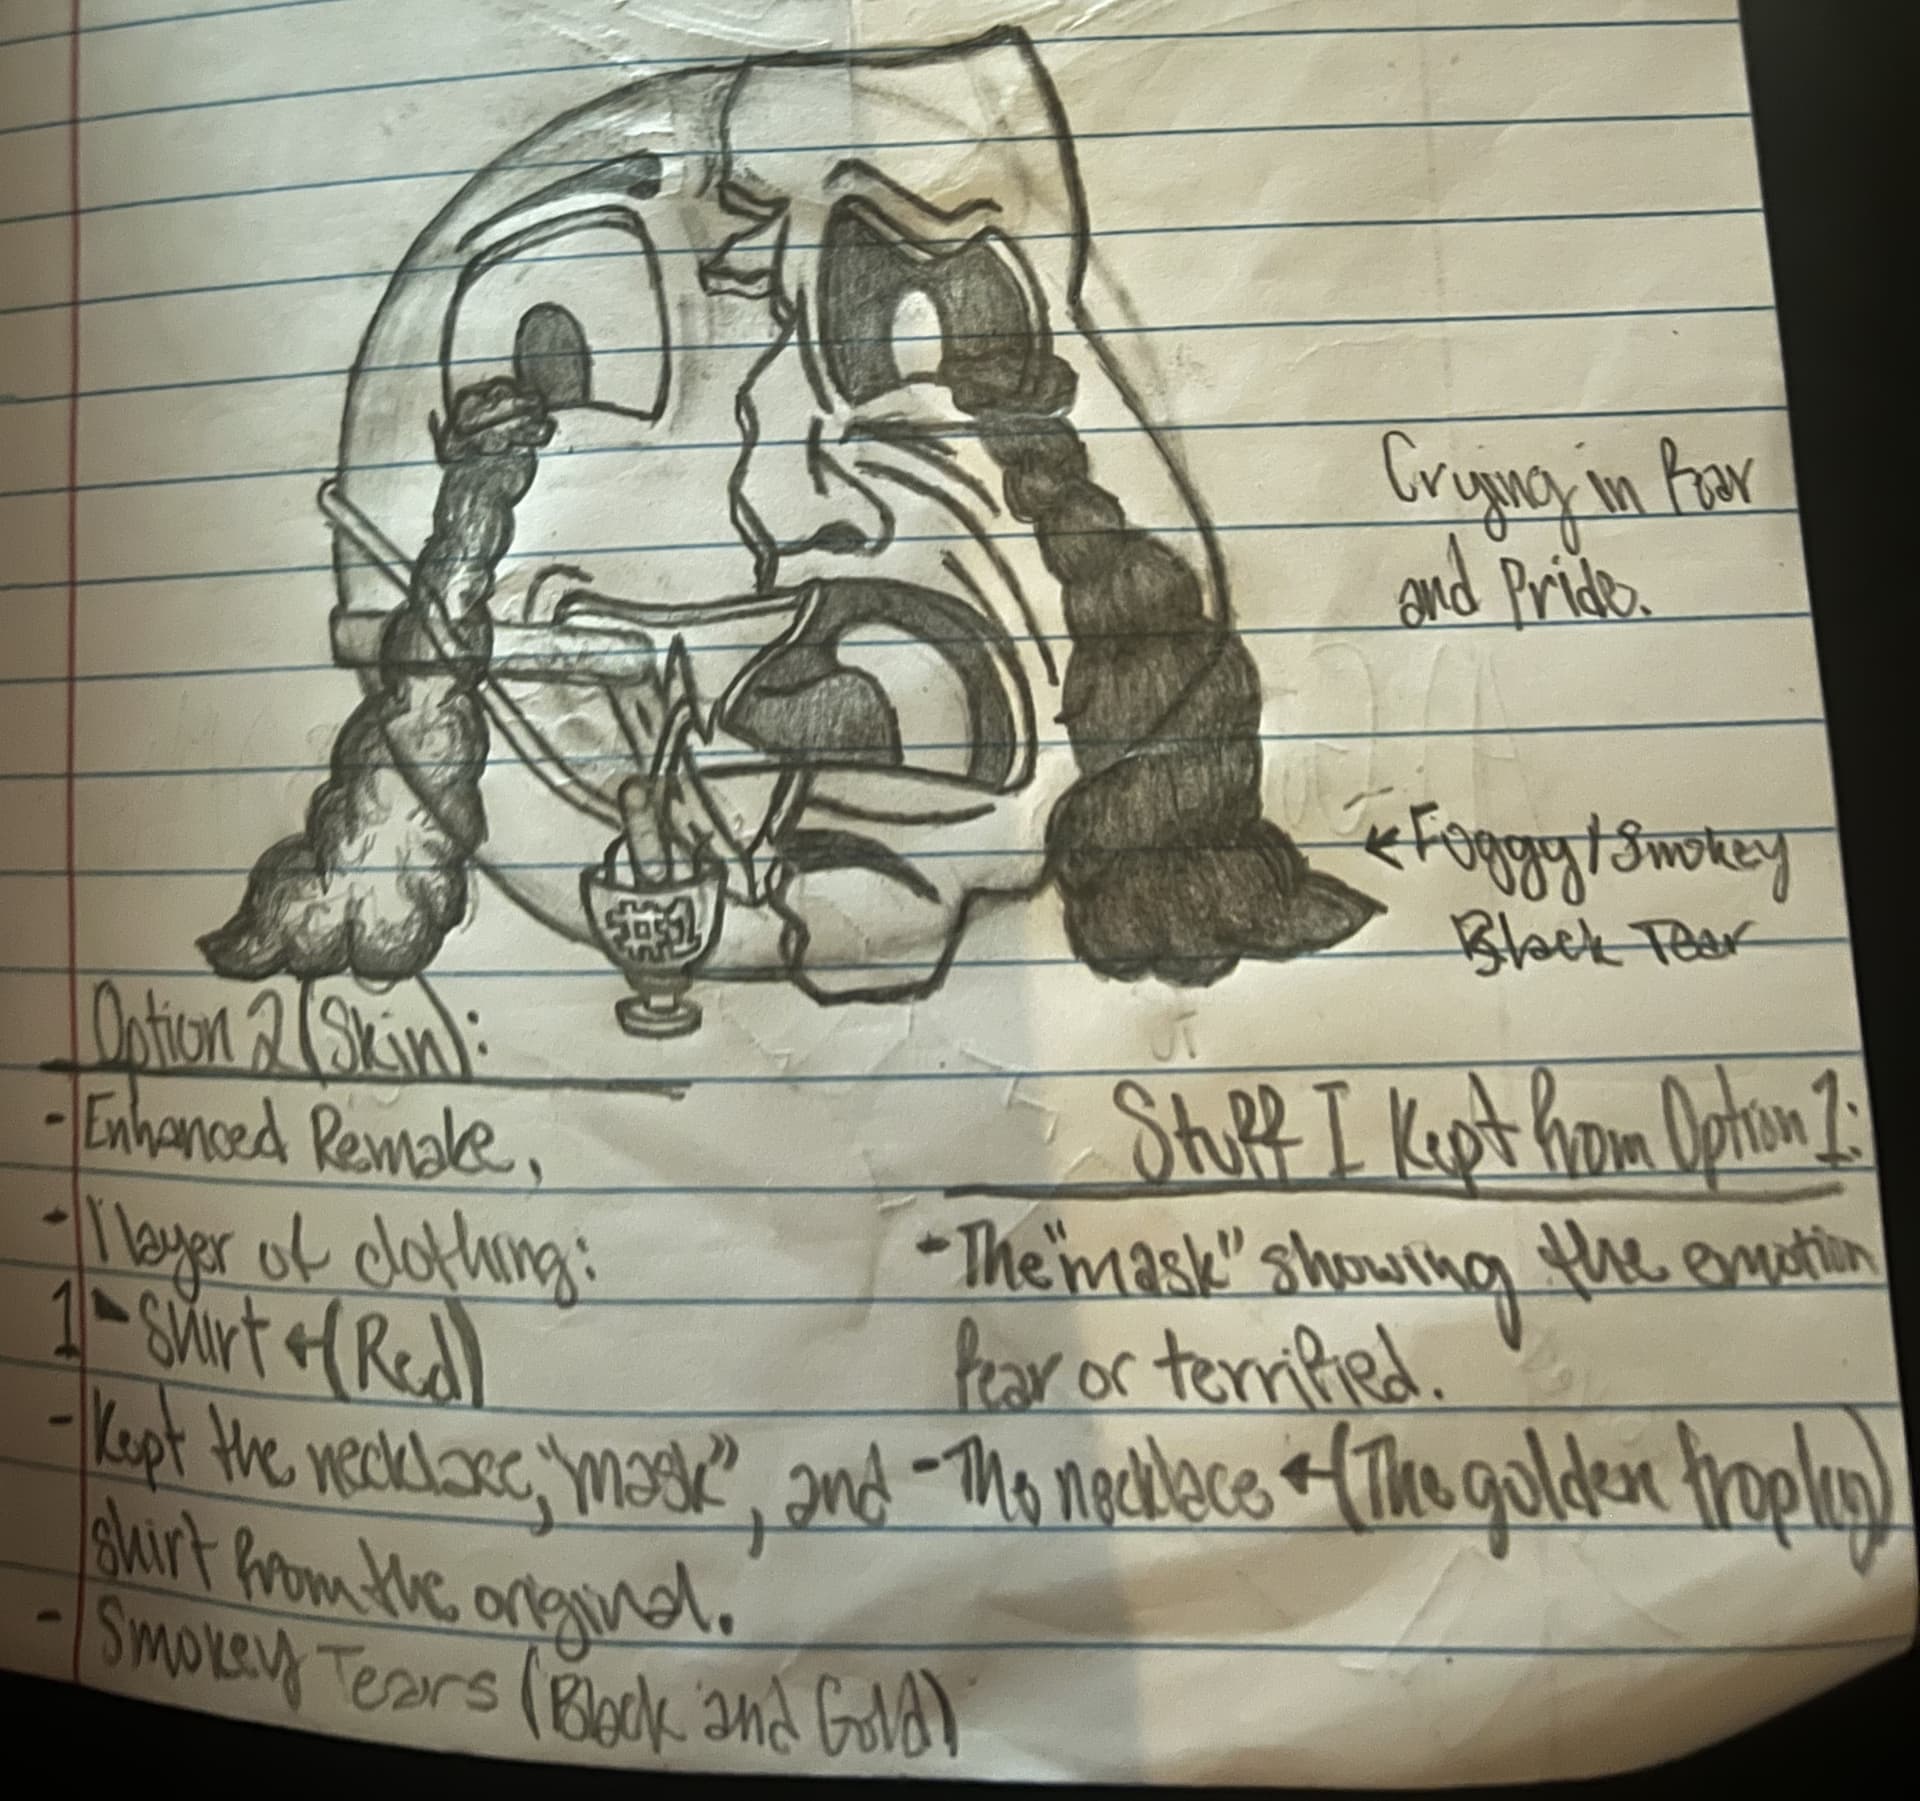 Crying in Fear
and Pride.
← Foggy/Smokey
Black Tear
#1
Option 2 (Skin):
- Enhanced Remake,
- 1 layer of clothing:
1 - Shirt ← (Red)
- Kept the necklace, "mask", and
shirt from the original.
- Smokey Tears (Black and Gold)
Stuff I Kept from Option 1:
- The "mask" showing the emotion
fear or terrified.
- The necklace ← (The golden trophy)